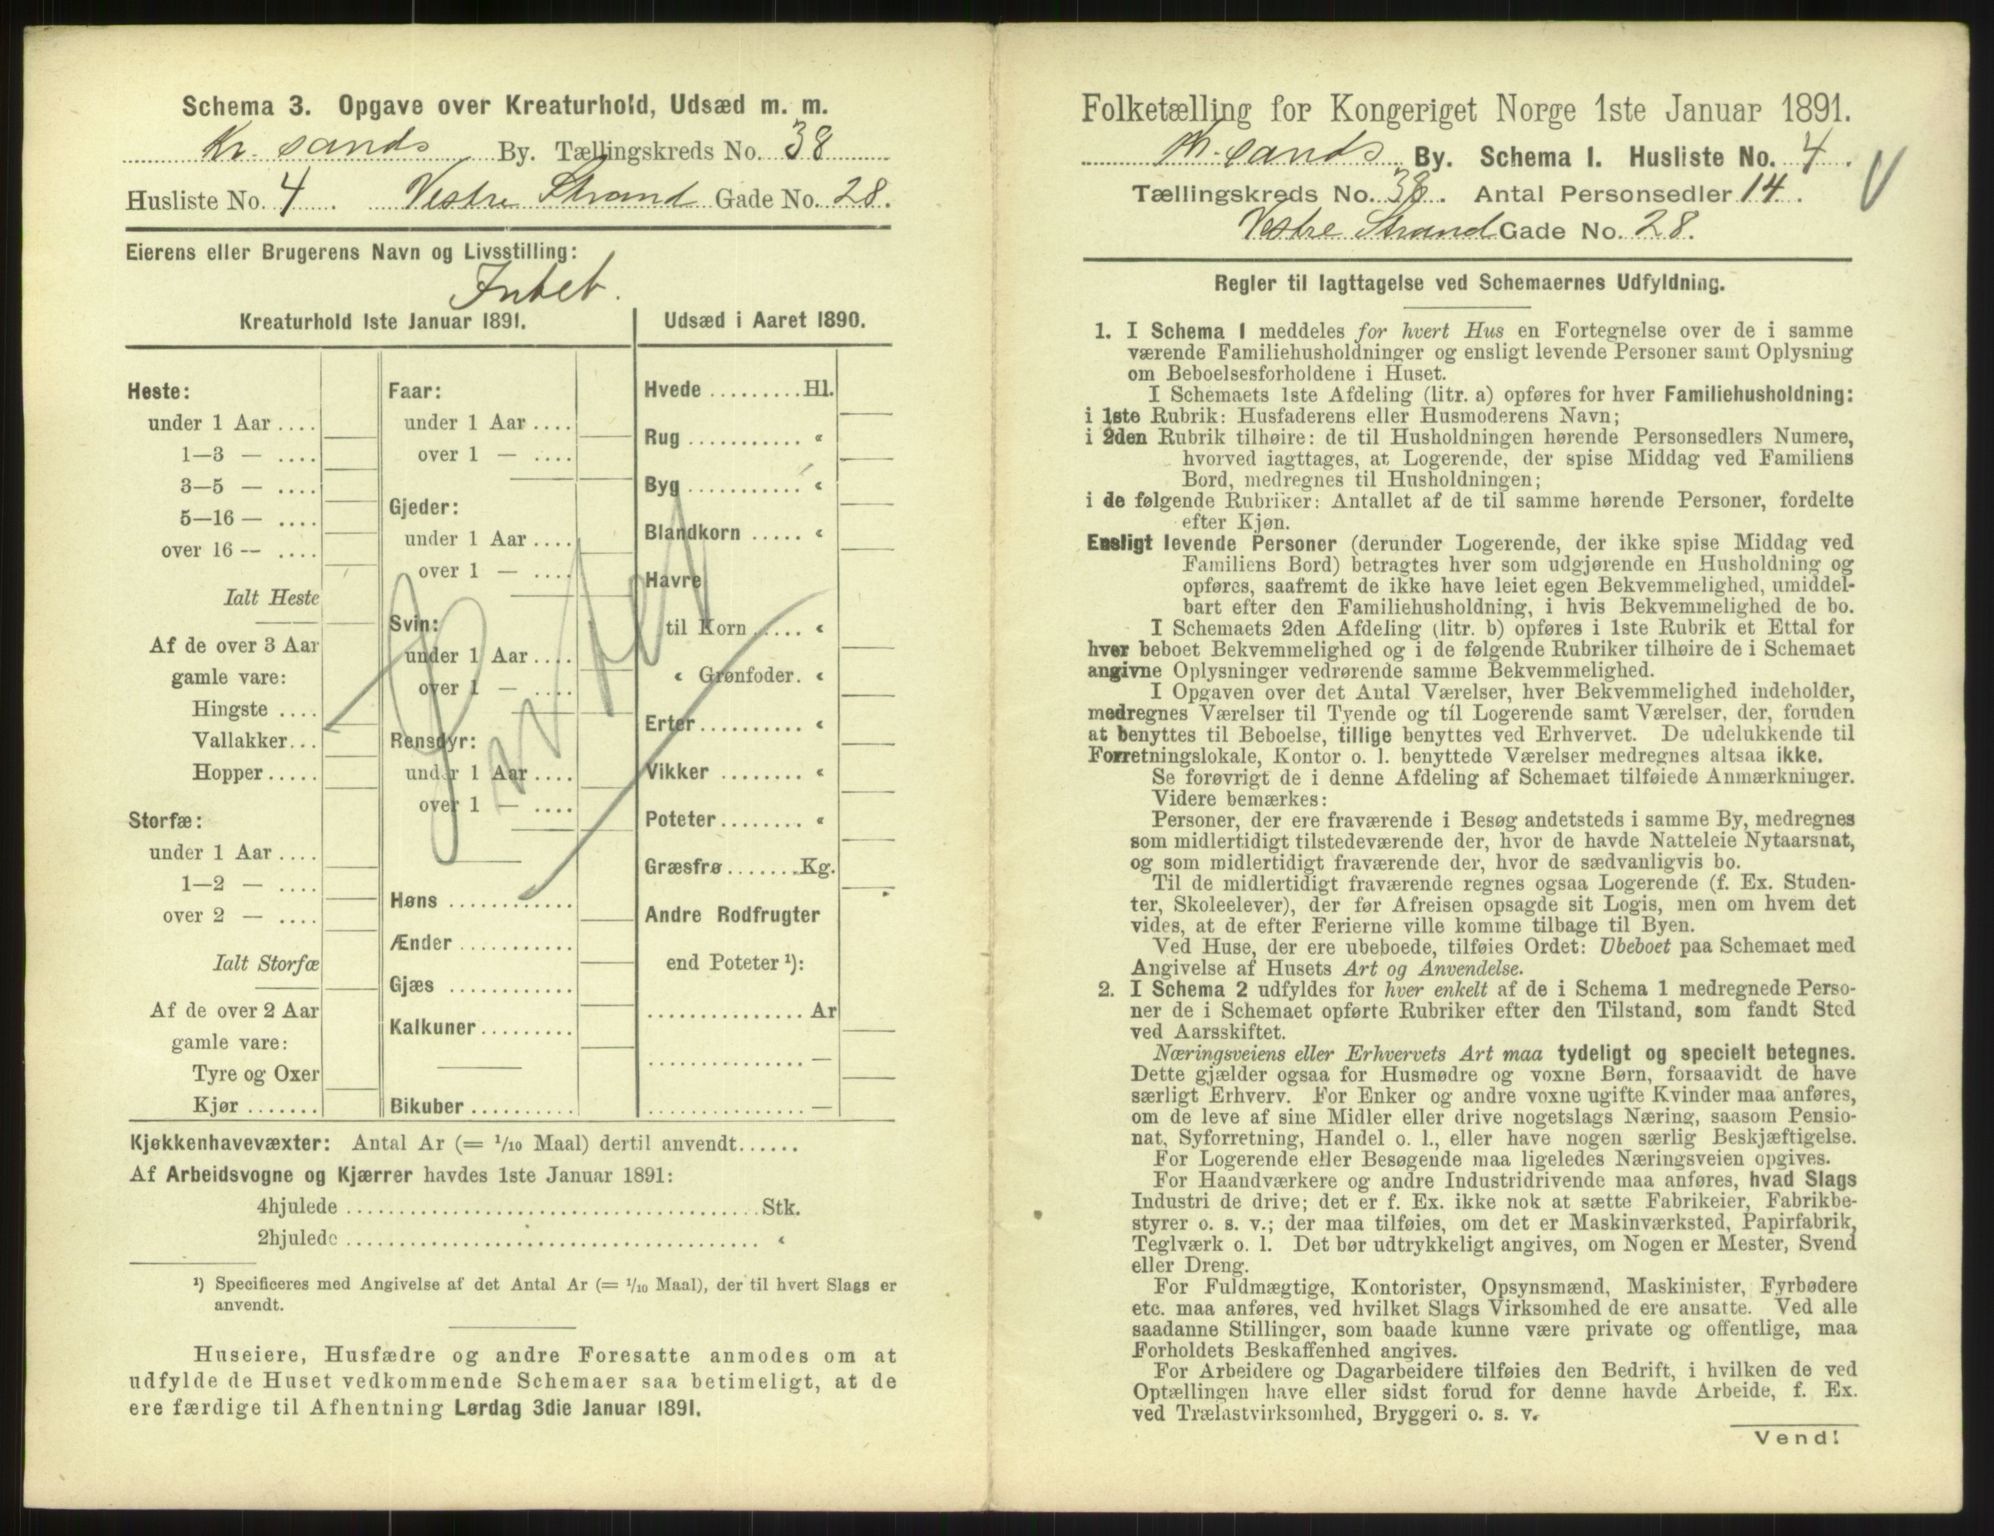 Schema 3. Opgave over Kreaturhold, Udsæd m. m.
Kr. sands By. Tællingskreds No. 38
Husliste No. 4. Vestre Strand Gade No. 28.
Eierens eller Brugerens Navn og Livsstilling:
Intet.
Kreaturhold 1ste Januar 1891.
Heste:
under 1 Aar ....
1—3 — ....
3—5 — ....
5—16 — ....
over 16 — ....
Ialt Heste
Af de over 3 Aar
gamle vare:
Hingste ....
Vallakker...
Hopper.....
Storfæ:
under 1 Aar ....
1—2 — ....
over 2 — ....
Ialt Storfæ
Af de over 2 Aar
gamle vare:
Tyre og Oxer
Kjør .......
Faar:
under 1 Aar ....
over 1 — ....
Gjeder:
under 1 Aar ....
over 1 — ....
Svin:
under 1 Aar....
over 1 — ....
Rensdyr:
under 1 Aar....
over 1 — ....
Høns ............
Ænder ...........
Gjæs ............
Kalkuner.........
Bikuber ..........
Udsæd i Aaret 1890.
Hvede .........Hl.
Rug ........... «
Byg ........... «
Blandkorn ..... «
Havre
til Korn ..... «
« Grønfoder. «
Erter.......... «
Vikker ........ «
Poteter........ «
Græsfrø.......Kg.
Andre Rodfrugter
end Poteter ¹):
............... Ar
............... —
............... —
Kjøkkenhavevæxter: Antal Ar (= 1/10 Maal) dertil anvendt......
Af Arbeidsvogne og Kjærrer havdes 1ste Januar 1891:
4hjulede ....................................... Stk.
2hjulede ....................................... «
¹) Specificeres med Angivelse af det Antal Ar (= 1/10 Maal), der til hvert Slags er
anvendt.
Huseiere, Husfædre og andre Foresatte anmodes om at
udfylde de Huset vedkommende Schemaer saa betimeligt, at de
ere færdige til Afhentning Lørdag 3die Januar 1891.
Folketælling for Kongeriget Norge 1ste Januar 1891.
Kr. sands By. Schema 1. Husliste No. 4.
Tællingskreds No. 38. Antal Personsedler 14.
Vestre Strand Gade No. 28.
Regler til Iagttagelse ved Schemaernes Udfyldning.
1. I Schema 1 meddeles for hvert Hus en Fortegnelse over de i samme
værende Familiehusholdninger og ensligt levende Personer samt Oplysning
om Beboelsesforholdene i Huset.
I Schemaets 1ste Afdeling (litr. a) opføres for hver Familiehusholdning:
i 1ste Rubrik: Husfaderens eller Husmoderens Navn;
i 2den Rubrik tilhøire: de til Husholdningen hørende Personsedlers Numere,
hvorved iagttages, at Logerende, der spise Middag ved Familiens
Bord, medregnes til Husholdningen;
i de følgende Rubriker: Antallet af de til samme hørende Personer, fordelte
efter Kjøn.
Ensligt levende Personer (derunder Logerende, der ikke spise Middag ved
Familiens Bord) betragtes hver som udgjørende en Husholdning og
opføres, saafremt de ikke have leiet egen Bekvemmelighed, umiddel-
bart efter den Familiehusholdning, i hvis Bekvemmelighed de bo.
I Schemaets 2den Afdeling (litr. b) opføres i 1ste Rubrik et Ettal for
hver beboet Bekvemmelighed og i de følgende Rubriker tilhøire de i Schemaet
angivne Oplysninger vedrørende samme Bekvemmelighed.
I Opgaven over det Antal Værelser, hver Bekvemmelighed indeholder,
medregnes Værelser til Tyende og til Logerende samt Værelser, der, foruden
at benyttes til Beboelse, tillige benyttes ved Erhvervet. De udelukkende til
Forretningslokale, Kontor o. l. benyttede Værelser medregnes altsaa ikke.
Se forøvrigt de i denne Afdeling af Schemaet tilføiede Anmærkninger.
Videre bemærkes:
Personer, der ere fraværende i Besøg andetsteds i samme By, medregnes
som midlertidigt tilstedeværende der, hvor de havde Natteleie Nytaarsnat,
og som midlertidigt fraværende der, hvor de sædvanligvis bo.
Til de midlertidigt fraværende regnes ogsaa Logerende (f. Ex. Studen-
ter, Skoleelever), der før Afreisen opsagde sit Logis, men om hvem det
vides, at de efter Ferierne ville komme tilbage til Byen.
Ved Huse, der ere ubeboede, tilføies Ordet: Ubeboet paa Schemaet med
Angivelse af Husets Art og Anvendelse.
2. I Schema 2 udfyldes for hver enkelt af de i Schema 1 medregnede Perso-
ner de i Schemaet opførte Rubriker efter den Tilstand, som fandt Sted
ved Aarsskiftet.
Næringsveiens eller Erhvervets Art maa tydeligt og specielt betegnes.
Dette gjælder ogsaa for Husmødre og voxne Børn, forsaavidt de have
særligt Erhverv. For Enker og andre voxne ugifte Kvinder maa anføres,
om de leve af sine Midler eller drive nogetslags Næring, saasom Pensio-
nat, Syforretning, Handel o. l., eller have nogen særlig Beskjæftigelse.
For Logerende eller Besøgende maa ligeledes Næringsveien opgives.
For Haandværkere og andre Industridrivende maa anføres, hvad Slags
Industri de drive; det er f. Ex. ikke nok at sætte Fabrikeier, Fabrikbe-
styrer o. s. v.; der maa tilføies, om det er Maskinværksted, Papirfabrik,
Teglværk o. l. Det bør udtrykkeligt angives, om Nogen er Mester, Svend
eller Dreng.
For Fuldmægtige, Kontorister, Opsynsmænd, Maskinister, Fyrbødere
etc. maa anføres, ved hvilket Slags Virksomhed de ere ansatte. Ved alle
saadanne Stillinger, som baade kunne være private og offentlige, maa
Forholdets Beskaffenhed angives.
For Arbeidere og Dagarbeidere tilføies den Bedrift, i hvilken de ved
Optællingen have eller sidst forud for denne havde Arbeide, f. Ex.
ved Trælastvirksomhed, Bryggeri o. s. v.
Vend!